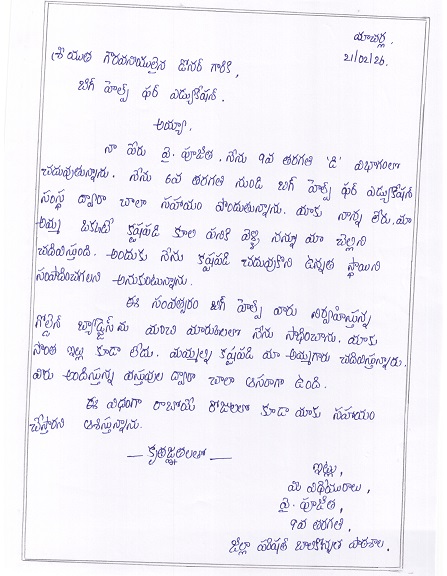 యాచర్ల.
21/02/26.
శ్రీయుత గౌరవనీయులైన డోనర్ గారికి,
బిగ్ హెల్ప్ ఫర్ ఎడ్యుకేషన్.
అయ్యా.
నా పేరు వై. పూజిత. నేను 9వ తరగతి 'డి' విభాగంలో
చదువుతున్నాను. నేను 6వ తరగతి నుండి బిగ్ హెల్ప్ ఫర్ ఎడ్యుకేషన్
సంస్థ ద్వారా చాలా సహాయం పొందుతున్నాను. మాకు నాన్న లేరు. మా
అమ్మ ఒక్కటే కష్టపడి కూలి పనికి వెళ్ళి నన్నూ మా చెల్లిని
చదివిస్తుంది. అందుకు నేను కష్టపడి చదువుకొని ఉన్నత స్థాయిని
సంపాదించగలని అనుకుంటున్నాను.
ఈ సంవత్సరం బిగ్ హెల్ప్ వారు నిర్వహిస్తున్న
గోల్డెన్ బ్యాడ్జెస్ ను మంచి మార్కులలో నేను సాధించాను. మాకు
సొంత ఇల్లు కూడా లేదు. మమ్మల్ని కష్టపడి మా అమ్మగారు చదివిస్తున్నారు.
వీరు అందిస్తున్న వస్తువుల ద్వారా చాలా ఆసరాగా ఉంది.
ఈ విధంగా రాబోయే రోజులలో కూడా మాకు సహాయం
చేస్తారని ఆశిస్తున్నాను.
— కృతజ్ఞతలతో —
ఇట్లు,
మీ విధేయురాలు,
వై. పూజిత,
9వ తరగతి,
జిల్లా పరిషత్ బాలికోన్నత పాఠశాల.